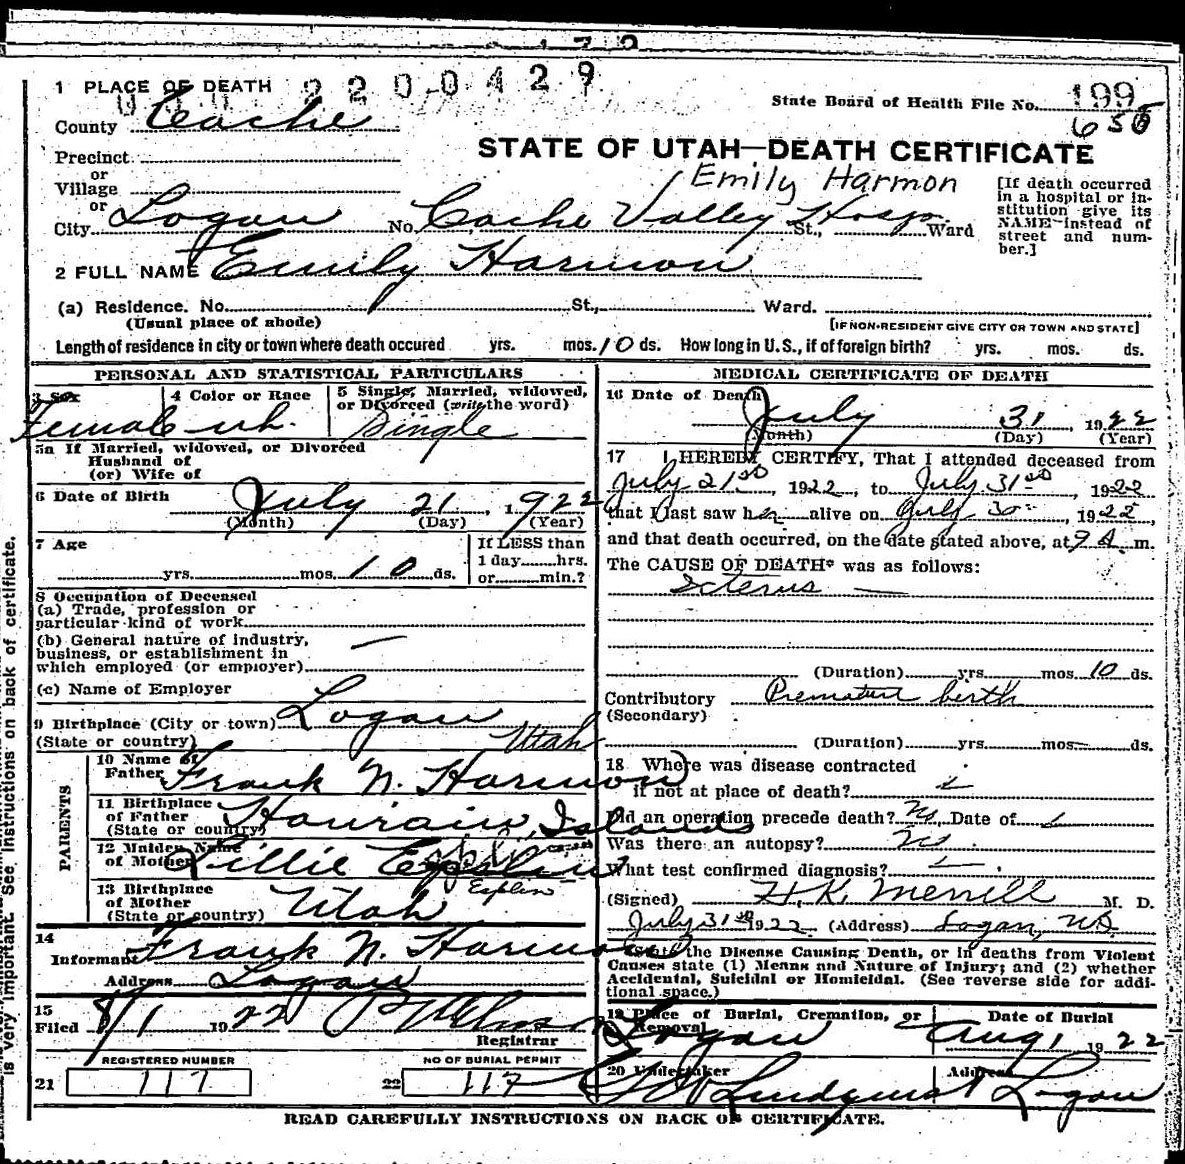 2200429
1 PLACE OF DEATH
State Board of Health File No. 199
County Cache
STATE OF UTAH—DEATH CERTIFICATE
Precinct
or
Village
or
Emily Harmon
[If death occurred
in a hospital or in-
stitution give its
NAME instead of
street and num-
ber.]
City Logan No. Cache Valley Hosp. St., Ward
2 FULL NAME Emily Harmon
(a) Residence. No. St., Ward.
(Usual place of abode)
[IF NON-RESIDENT GIVE CITY OR TOWN AND STATE]
Length of residence in city or town where death occured yrs. mos. 10 ds. How long in U.S., if of foreign birth? yrs. mos. ds.
PERSONAL AND STATISTICAL PARTICULARS
3 Sex
Female
4 Color or Race
wh.
5 Single, Married, widowed,
or Divorced (write the word)
Single
5a If Married, widowed, or Divorced
Husband of
(or) Wife of
6 Date of Birth July 21, 1922
(Month) (Day) (Year)
7 Age
yrs. mos. 10 ds.
If LESS than
1 day hrs.
or min.?
8 Occupation of Deceased
(a) Trade, profession or
particular kind of work
(b) General nature of industry,
business, or establishment in
which employed (or employer)
(c) Name of Employer
9 Birthplace (City or town) Logan
(State or country) Utah
PARENTS
10 Name of
Father Frank N. Harmon
11 Birthplace
of Father
(State or country) Islands
12 Maiden Name
of Mother Lillie
Esplin
13 Birthplace
of Mother
(State or country) Utah
14
Informant Frank N. Harmon
Address Logan
15
Filed 8/1 1922
Registrar
REGISTERED NUMBER
21 117
NO OF BURIAL PERMIT
22 117
MEDICAL CERTIFICATE OF DEATH
16 Date of Death
July 31 1922
(Month) (Day) (Year)
17 I HEREBY CERTIFY, That I attended deceased from
July 21st, 1922, to July 31st, 1922
that I last saw her alive on July 30, 1922,
and that death occurred, on the date stated above, at 9 A. m.
The CAUSE OF DEATH* was as follows:
Icterus —
(Duration) yrs. mos. 10 ds.
Contributory Premature birth
(Secondary)
(Duration) yrs. mos. ds.
18 Where was disease contracted
if not at place of death?
Did an operation precede death? No. Date of
Was there an autopsy? No
What test confirmed diagnosis?
(Signed) H. K. Merrill M. D.
July 31st 1922 (Address) Logan, Ut.
*State the Disease Causing Death, or in deaths from Violent
Causes state (1) Means and Nature of Injury; and (2) whether
Accidental, Suicidal or Homicidal. (See reverse side for addi-
tional space.)
19 Place of Burial, Cremation, or
Removal
Logan
Date of Burial
Aug 1 1922
20 Undertaker
Lindquist
Address
Logan
READ CAREFULLY INSTRUCTIONS ON BACK OF CERTIFICATE.
is very important. See instructions on back of certificate.